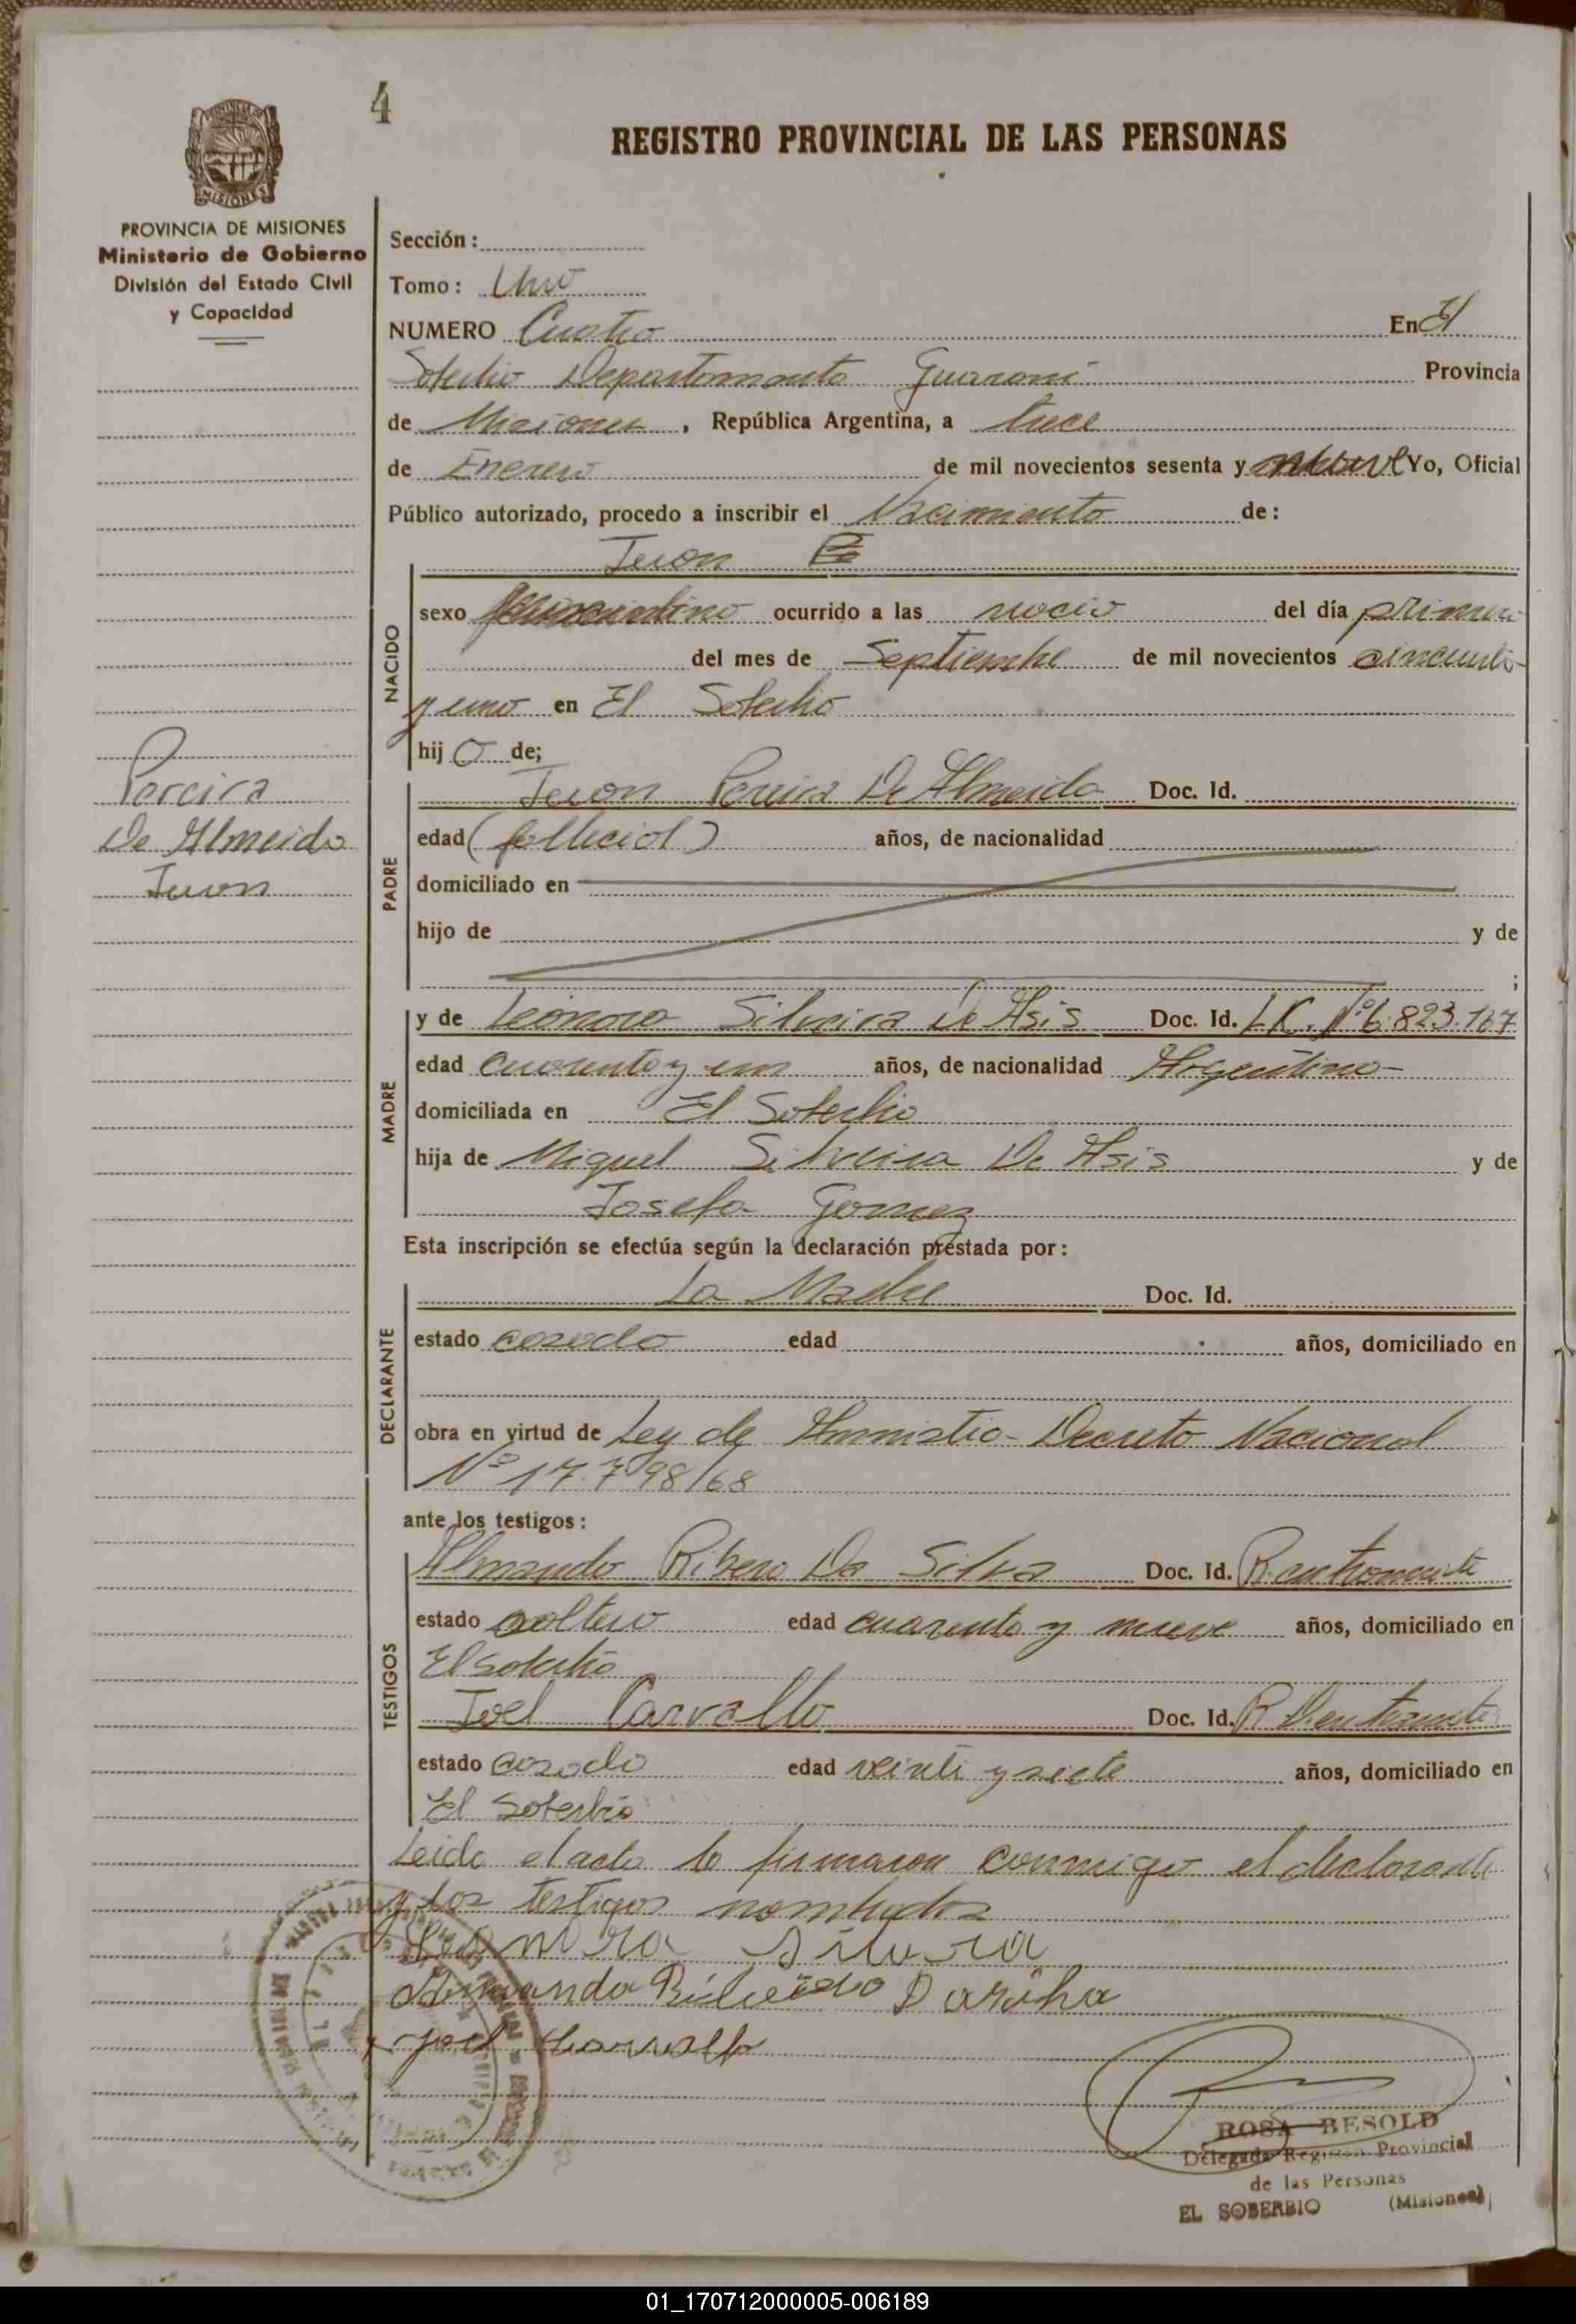 4
REGISTRO PROVINCIAL DE LAS PERSONAS
PROVINCIA DE
MISIONES
PROVINCIA DE MISIONES
Ministerio de Gobierno
División del Estado Civil
y Capacidad
Sección :
Tomo : Uno
NUMERO Cuatro En El
Soberbio Departamento Guaraní Provincia
de Misiones , República Argentina, a trece
de Enero de mil novecientos sesenta y nueve Yo, Oficial
Público autorizado, procedo a inscribir el Nacimiento de :
Juan
NACIDO
sexo ocurrido a las nueve del día primero
del mes de Septiembre de mil novecientos cincuenta
y uno en El Soberbio
hij o de;
Pereira
De Almeida
Juan
PADRE
Juan Pereira De Almeida Doc. Id.
edad (fallecido) años, de nacionalidad
domiciliado en
hijo de y de
;
MADRE
y de Leonora Silveira De Asis Doc. Id. L.C. Nº 6.823.167
edad cuarenta y un años, de nacionalidad Argentina-
domiciliada en El Soberbio
hija de Miguel Silveira De Asis y de
Josefa Gomez
Esta inscripción se efectúa según la declaración prestada por :
DECLARANTE
La Madre Doc. Id.
estado casada edad años, domiciliado en
obra en virtud de Ley de Amnistia- Decreto Nacional
Nº 17.798/68
ante los testigos :
TESTIGOS
Almando Ribero Da Silva Doc. Id.
estado soltero edad cuarenta y nueve años, domiciliado en
El Soberbio
Joel Carvallo Doc. Id.
estado casado edad veinti y siete años, domiciliado en
El Soberbio
Leida el acta la firmaron conmigo el declarante
y los testigos nombrados
Leonora Silvera
Joel Carvallo
ROSA BESOLD
Delegada Registro Provincial
de las Personas
EL SOBERBIO (Misiones)
01_170712000005-006189